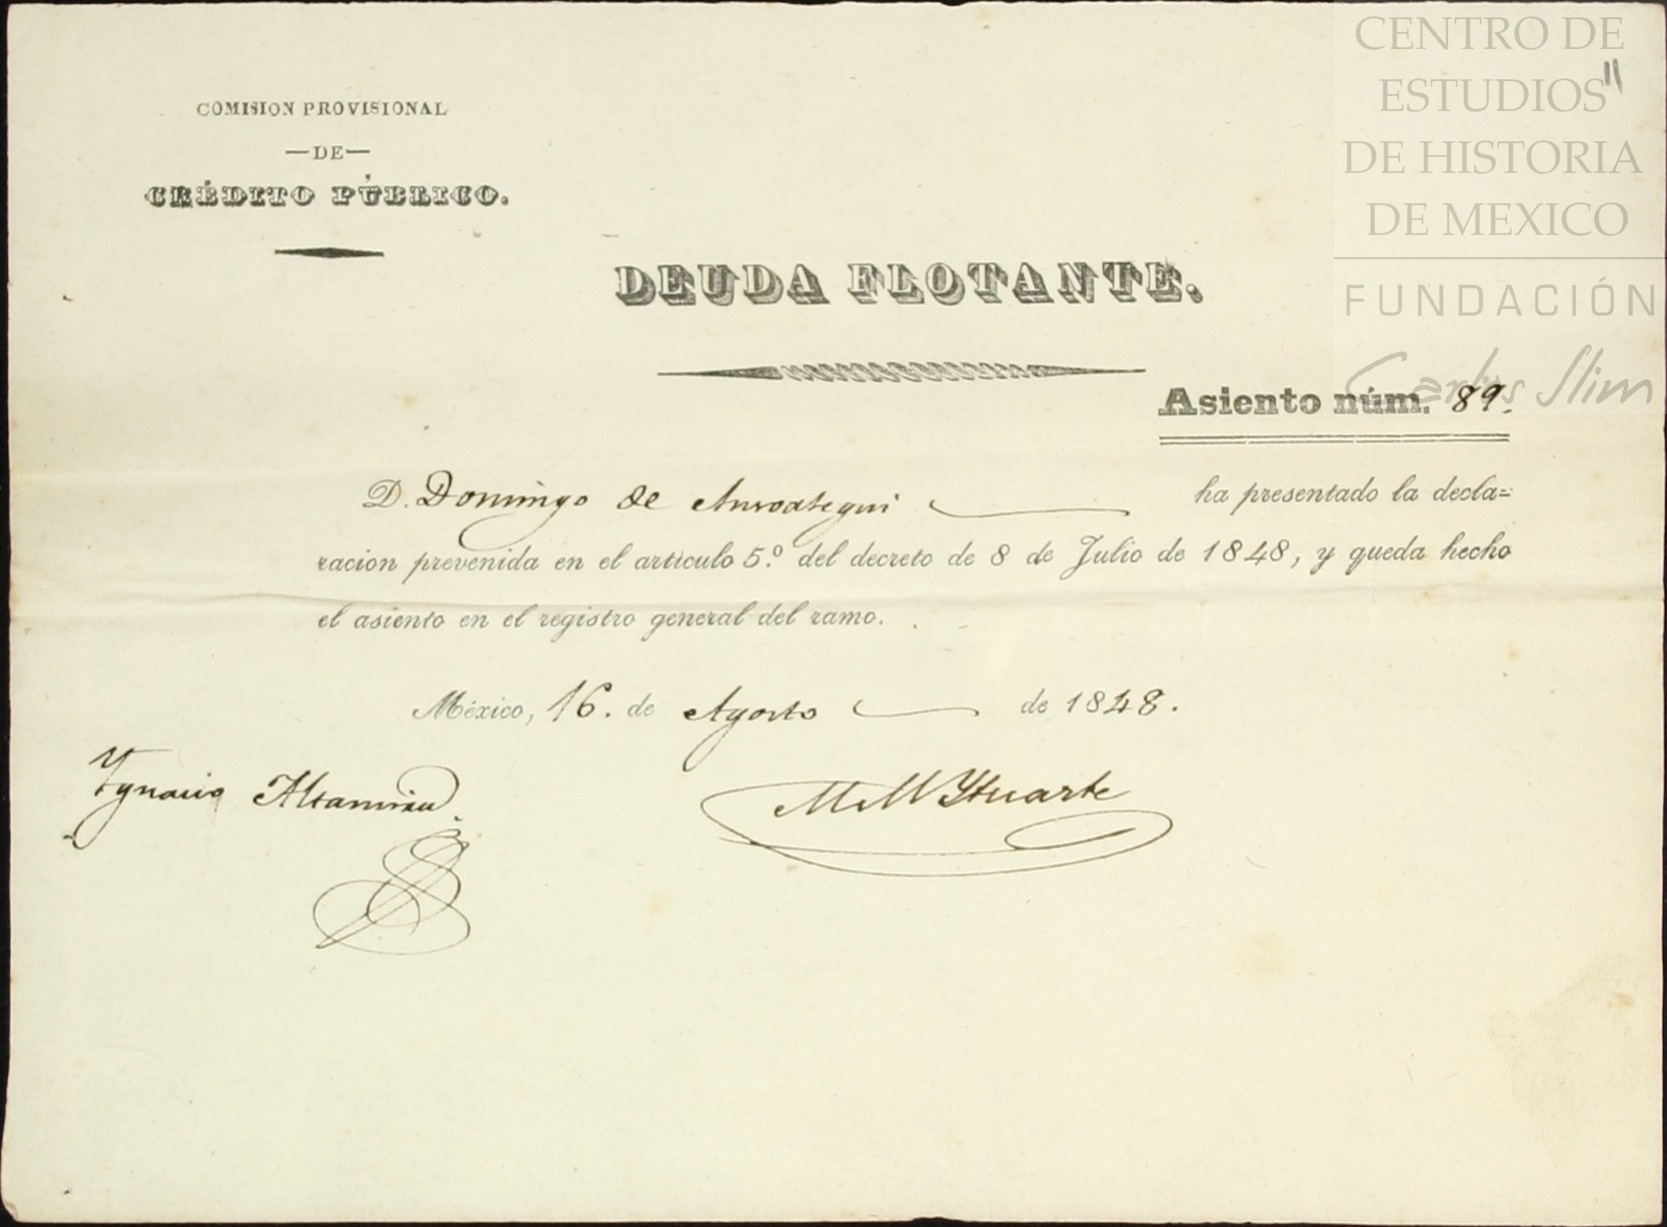 CENTRO DE
ESTUDIOS
DE HISTORIA
DE MEXICO
FUNDACIÓN
Carlos Slim
11
COMISION PROVISIONAL
—DE—
CRÉDITO PÚBLICO.
DEUDA FLOTANTE.
Asiento núm. 89.
D. Domingo de Ansoategui ha presentado la decla=
racion prevenida en el artículo 5.º del decreto de 8 de Julio de 1848, y queda hecho
el asiento en el registro general del ramo.
México, 16. de Agosto de 1848.
Ygnacio Altamirano
M M Ytuarte